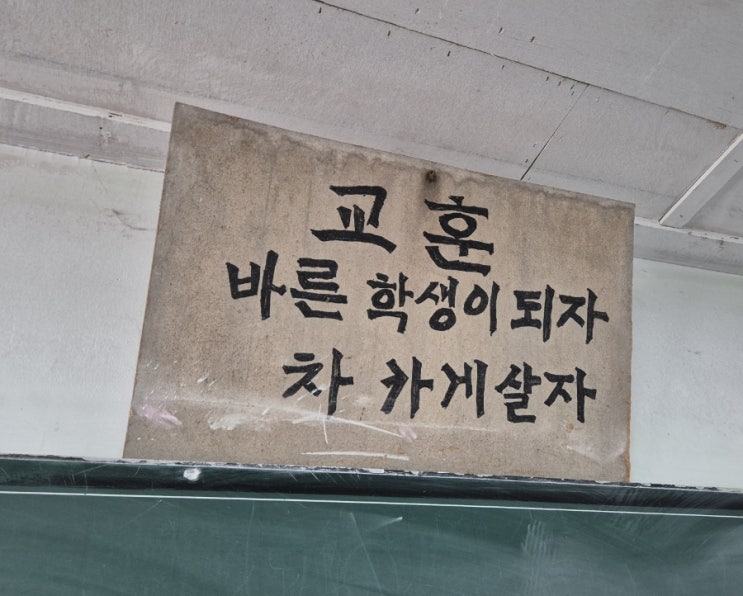 교 훈
바른 학생이 되자
차 카게 살자